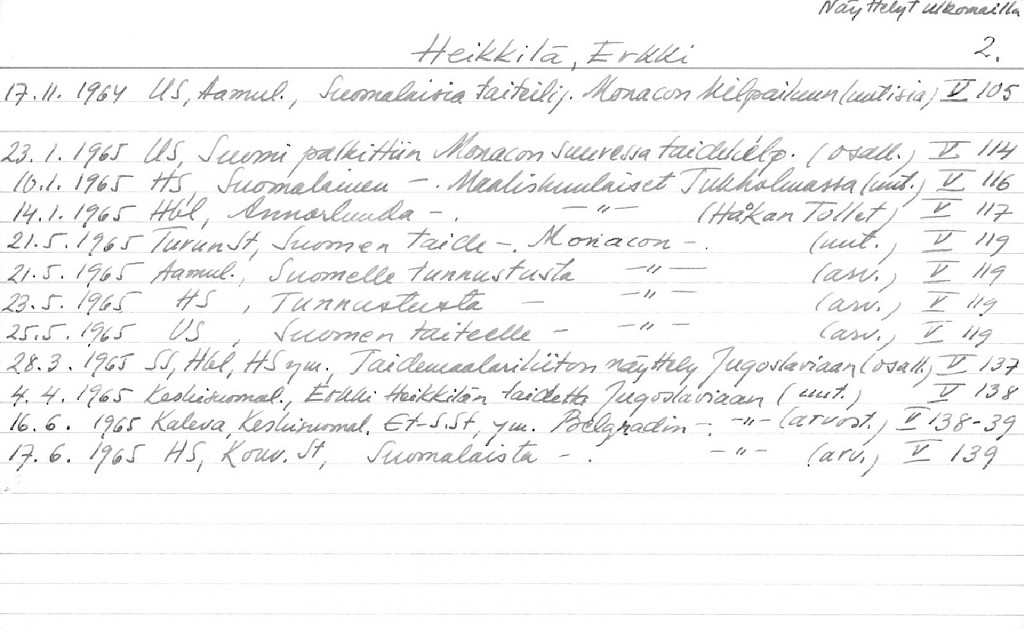 Näyttelyt ulkomailla
Heikkilä, Erkki 2.
17.11.1964 US, Aamul., Suomalaisia taiteilij. Monacon kilpailuun (uutisia) V 105
23.1.1965 US, Suomi palkittiin Monacon suuressa taidekilp. (osall.) V 114
10.1.1965 HS, Suomalainen -. Maaliskuulaiset Tukholmassa (uut.) V 116
14.1.1965 Hbl, Annorlunda -. -"- (Håkan Tollet) V 117
21.5.1965 Turun St, Suomen taide -. Monacon -. (uut.) V 119
21.5.1965 Aamul., Suomelle tunnustusta -"- (arv.) V 119
23.5.1965 HS, Tunnustusta - -"- (arv.) V 119
25.5.1965 US, Suomen taiteelle - -"- (arv.) V 119
28.3.1965 SS, Hbl, HS ym. Taidemaalariliiton näyttely Jugoslaviaan (osall.) V 137
4.4.1965 Keskisuomal., Erkki Heikkilän taidetta Jugoslaviaan (uut.) V 138
16.6.1965 Kaleva, Keskisuomal. Et-S.St, ym. Belgradin -. -"- (arvost.) V 138-39
17.6.1965 HS, Kouv.St, Suomalaista -. -"- (arv.) V 139